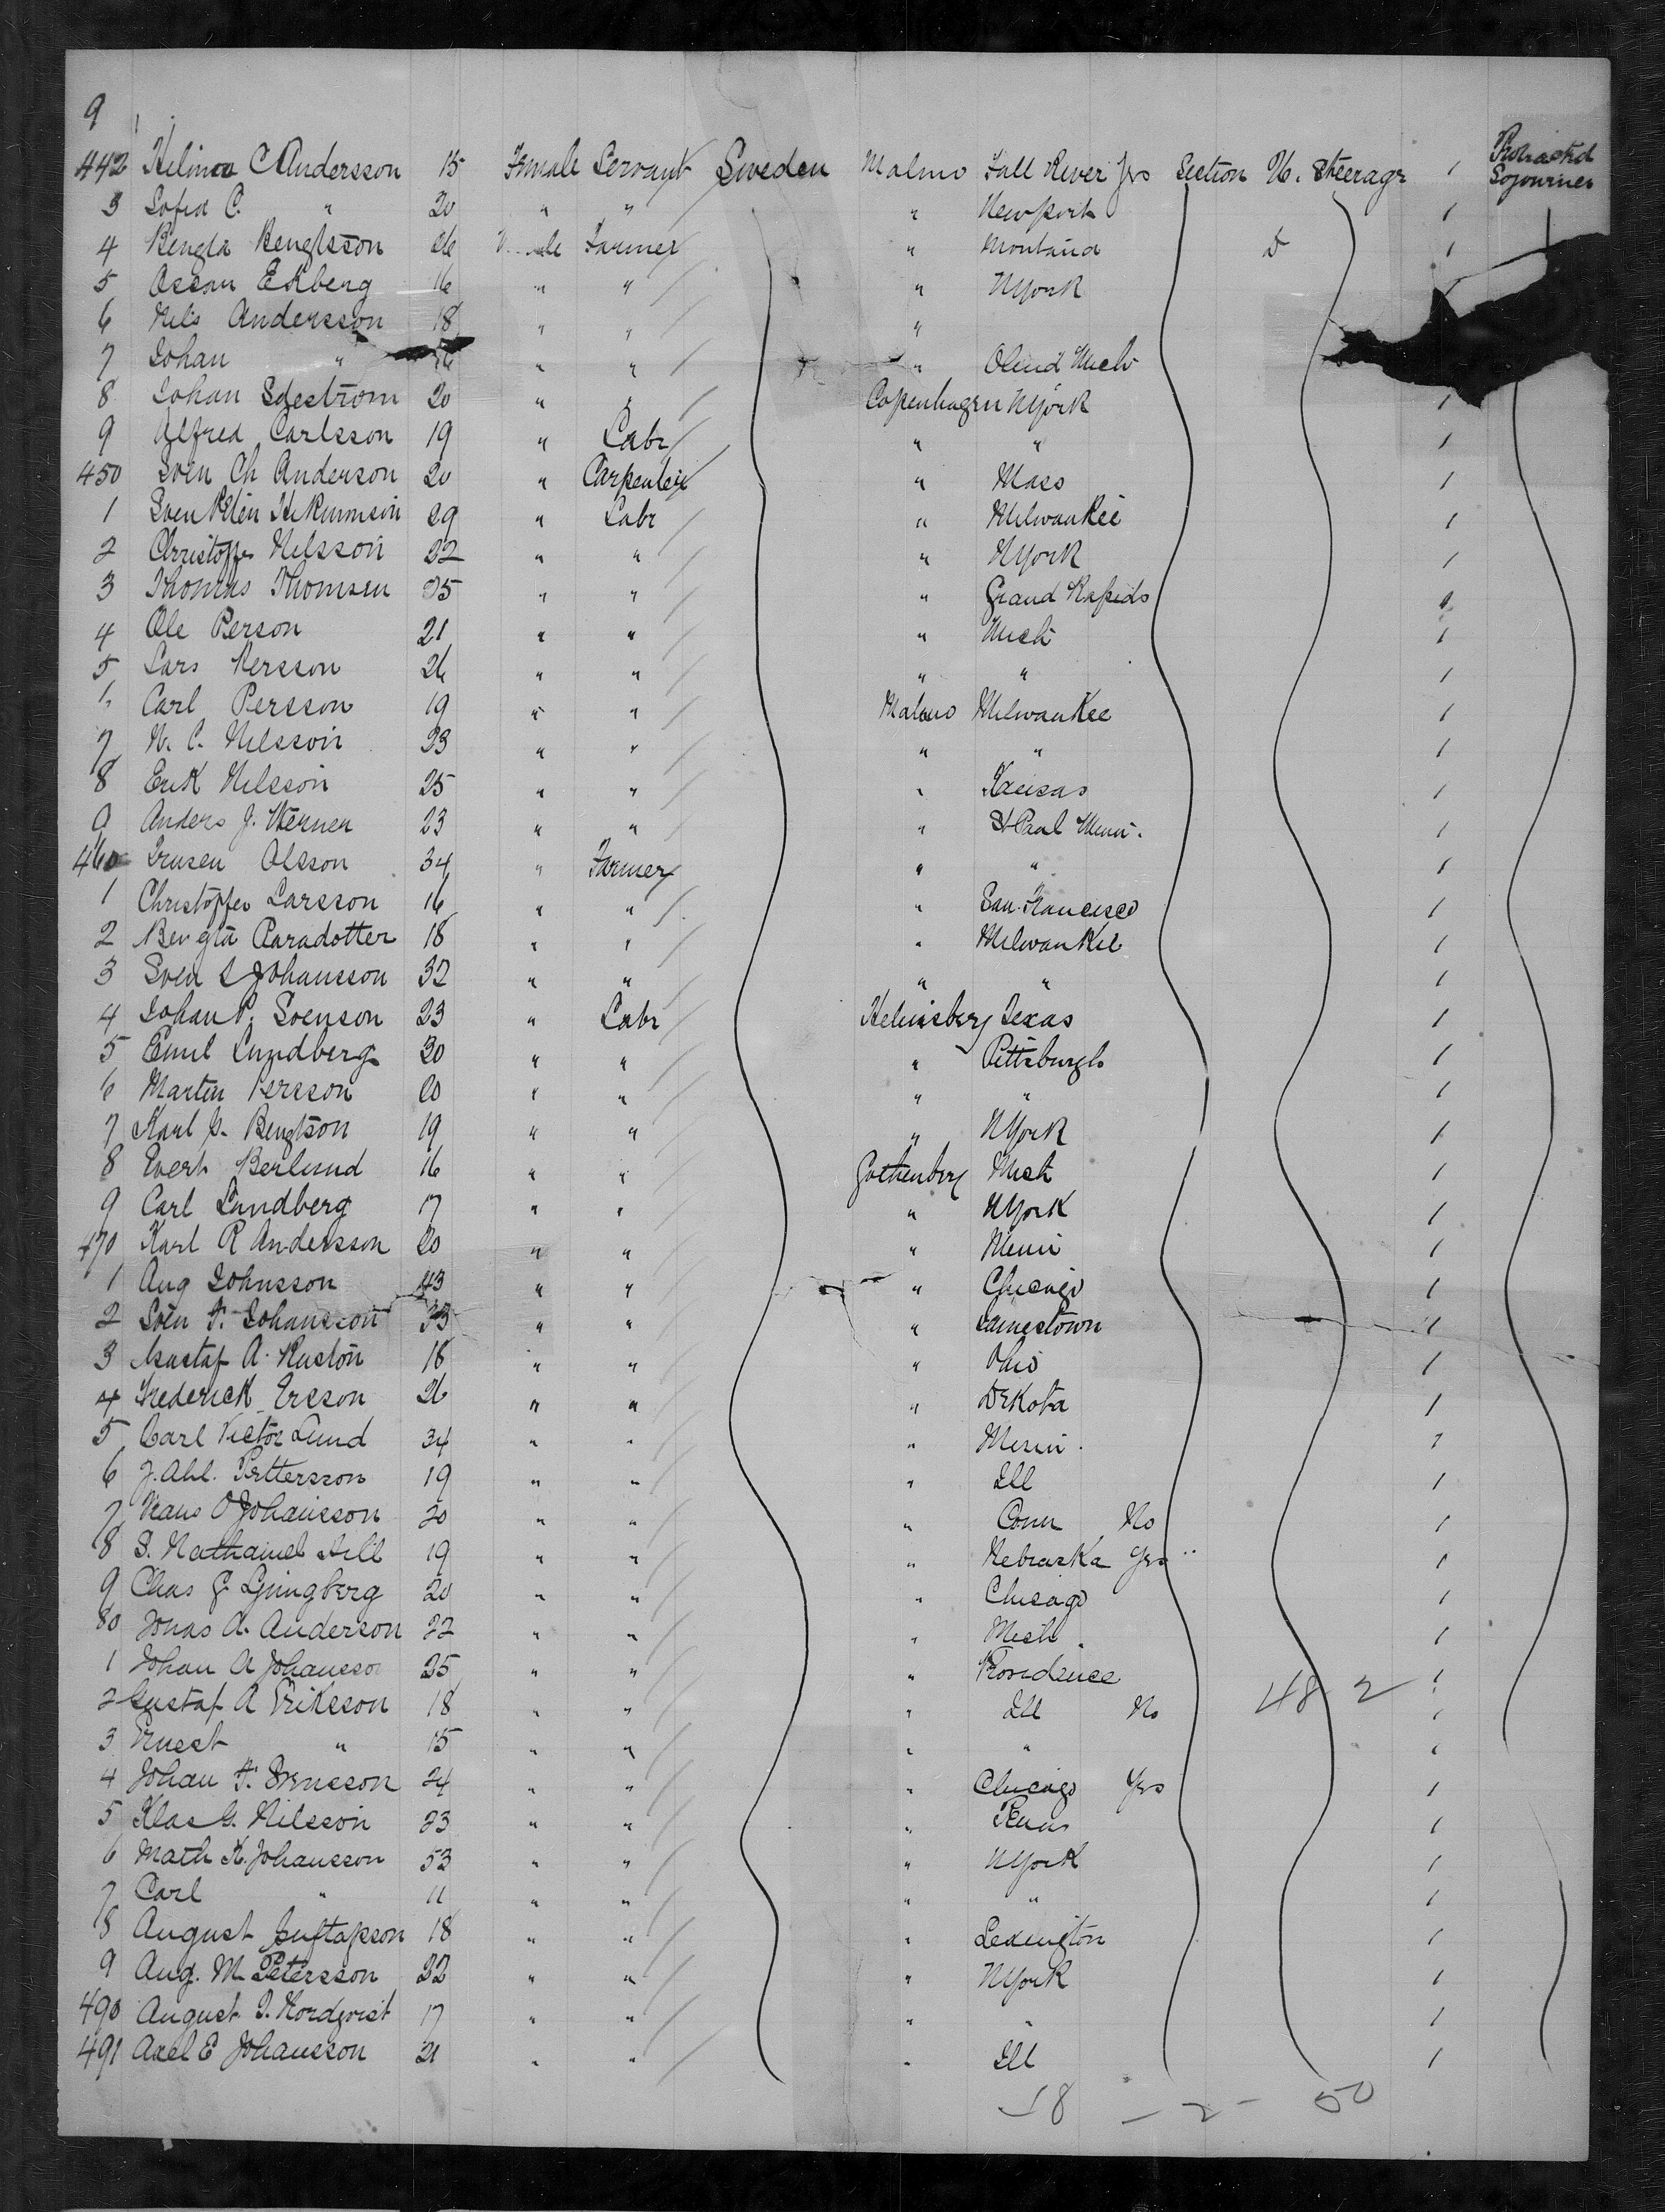 9
442 Helma C Andersson 15 Female Servant Sweden Malmo Fall River Yes Section H. Steerage 1 Protracted Sojourner
3 Sofia C. " 20 " " " Newport 1
4 Bengta Bengtsson 26 Farmer " Montana D 1
5 Oscar Ekberg 16 " " " NYork
6 Nels Andersson 18 " " "
7 Johan " " " " Mich
8 Johan 20 " " Copenhagen NYork 1
9 Alfred Carlsson 19 " Labr " " 1
450 Sven Ch Anderson 20 " Carpenter " Mass 1
1 Sven 29 " Labr " Milwaukee 1
2 Christoffer Nilsson 22 " " " NYork 1
3 Thomas Thomsen 25 " " " Grand Rapids 1
4 Ole Person 21 " " " Mich 1
5 Lars Persson 26 " " " " 1
Carl Persson 19 " " Malmo Milwaukee 1
7 N. C. Nilsson 23 " " " " 1
8 Erik Nilsson 25 " " " Kansas 1
9 Anders J. Werner 23 " " " St Paul Minn. 1
460 Olsson 34 " Farmer " " 1
1 Christoffer Larsson 16 " " " San Francisco 1
2 Bengta Paradotter 18 " " " Milwaukee 1
3 Sven L Johansson 32 " " " " 1
4 Johan P. Svenson 23 " Labr Helinsberg Texas 1
5 Emil Lundberg 30 " " " Pittsburgh 1
6 Martin Persson 20 " " " " 1
7 Karl P. Bengtson 19 " " " NYork 1
8 Evert Berlund 16 " " Gothenberg Mich 1
9 Carl Lundberg 17 " " " NYork 1
470 Karl R Andersson 20 " " " Minn 1
1 Aug Johnsson 43 " " " Chicago 1
2 Sven F. Johansson 33 " " " Jamestown 1
3 Gustaf A. Ruston 18 " " " Ohio 1
4 Frederick Ersson 26 " " " Dekota 1
5 Carl Victor Lund 34 " " " Minn. 1
6 J. Ahl. Pettersson 19 " " " Ill 1
7 O Johansson 20 " " " Conn No 1
8 S. Nathaniel Hill 19 " " " Nebraska Yes 1
9 Chas G. Ljungberg 20 " " " Chicago 1
80 Jonas A. Anderson 22 " " " Mich. 1
1 Johan A Johansson 25 " " " Providence 1
2 Gustaf A Eriksson 18 " " " Ill No 48 2 1
3 Ernest " 15 " " " " 1
4 Johan F. Svensson 24 " " " Chicago Yes 1
5 Klas G. Nilsson 23 " " " Penn 1
6 Math K. Johansson 53 " " " NYork 1
7 Carl " 11 " " " " 1
8 August Gustafsson 18 " " " Lexington 1
9 Aug. M Petersson 22 " " " NYork 1
490 August J. Nordqvist 17 " " " " 1
491 Axel E Johansson 21 " " " Ill 1
48 - 2 - 50